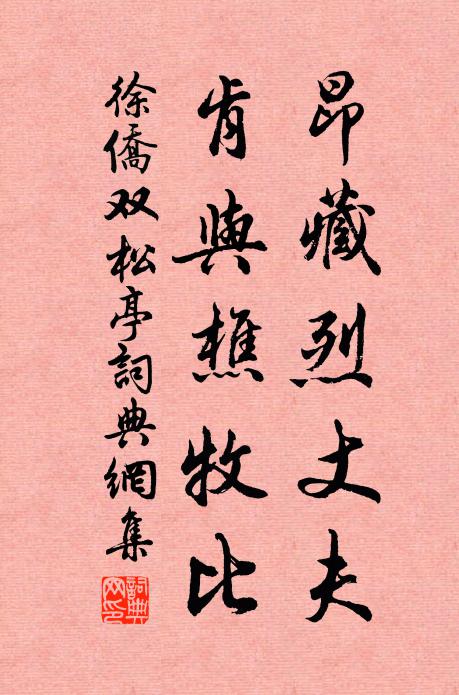 昂藏烈丈夫
肯與樵牧比
徐僑双松亭詞典網集
詞典網印